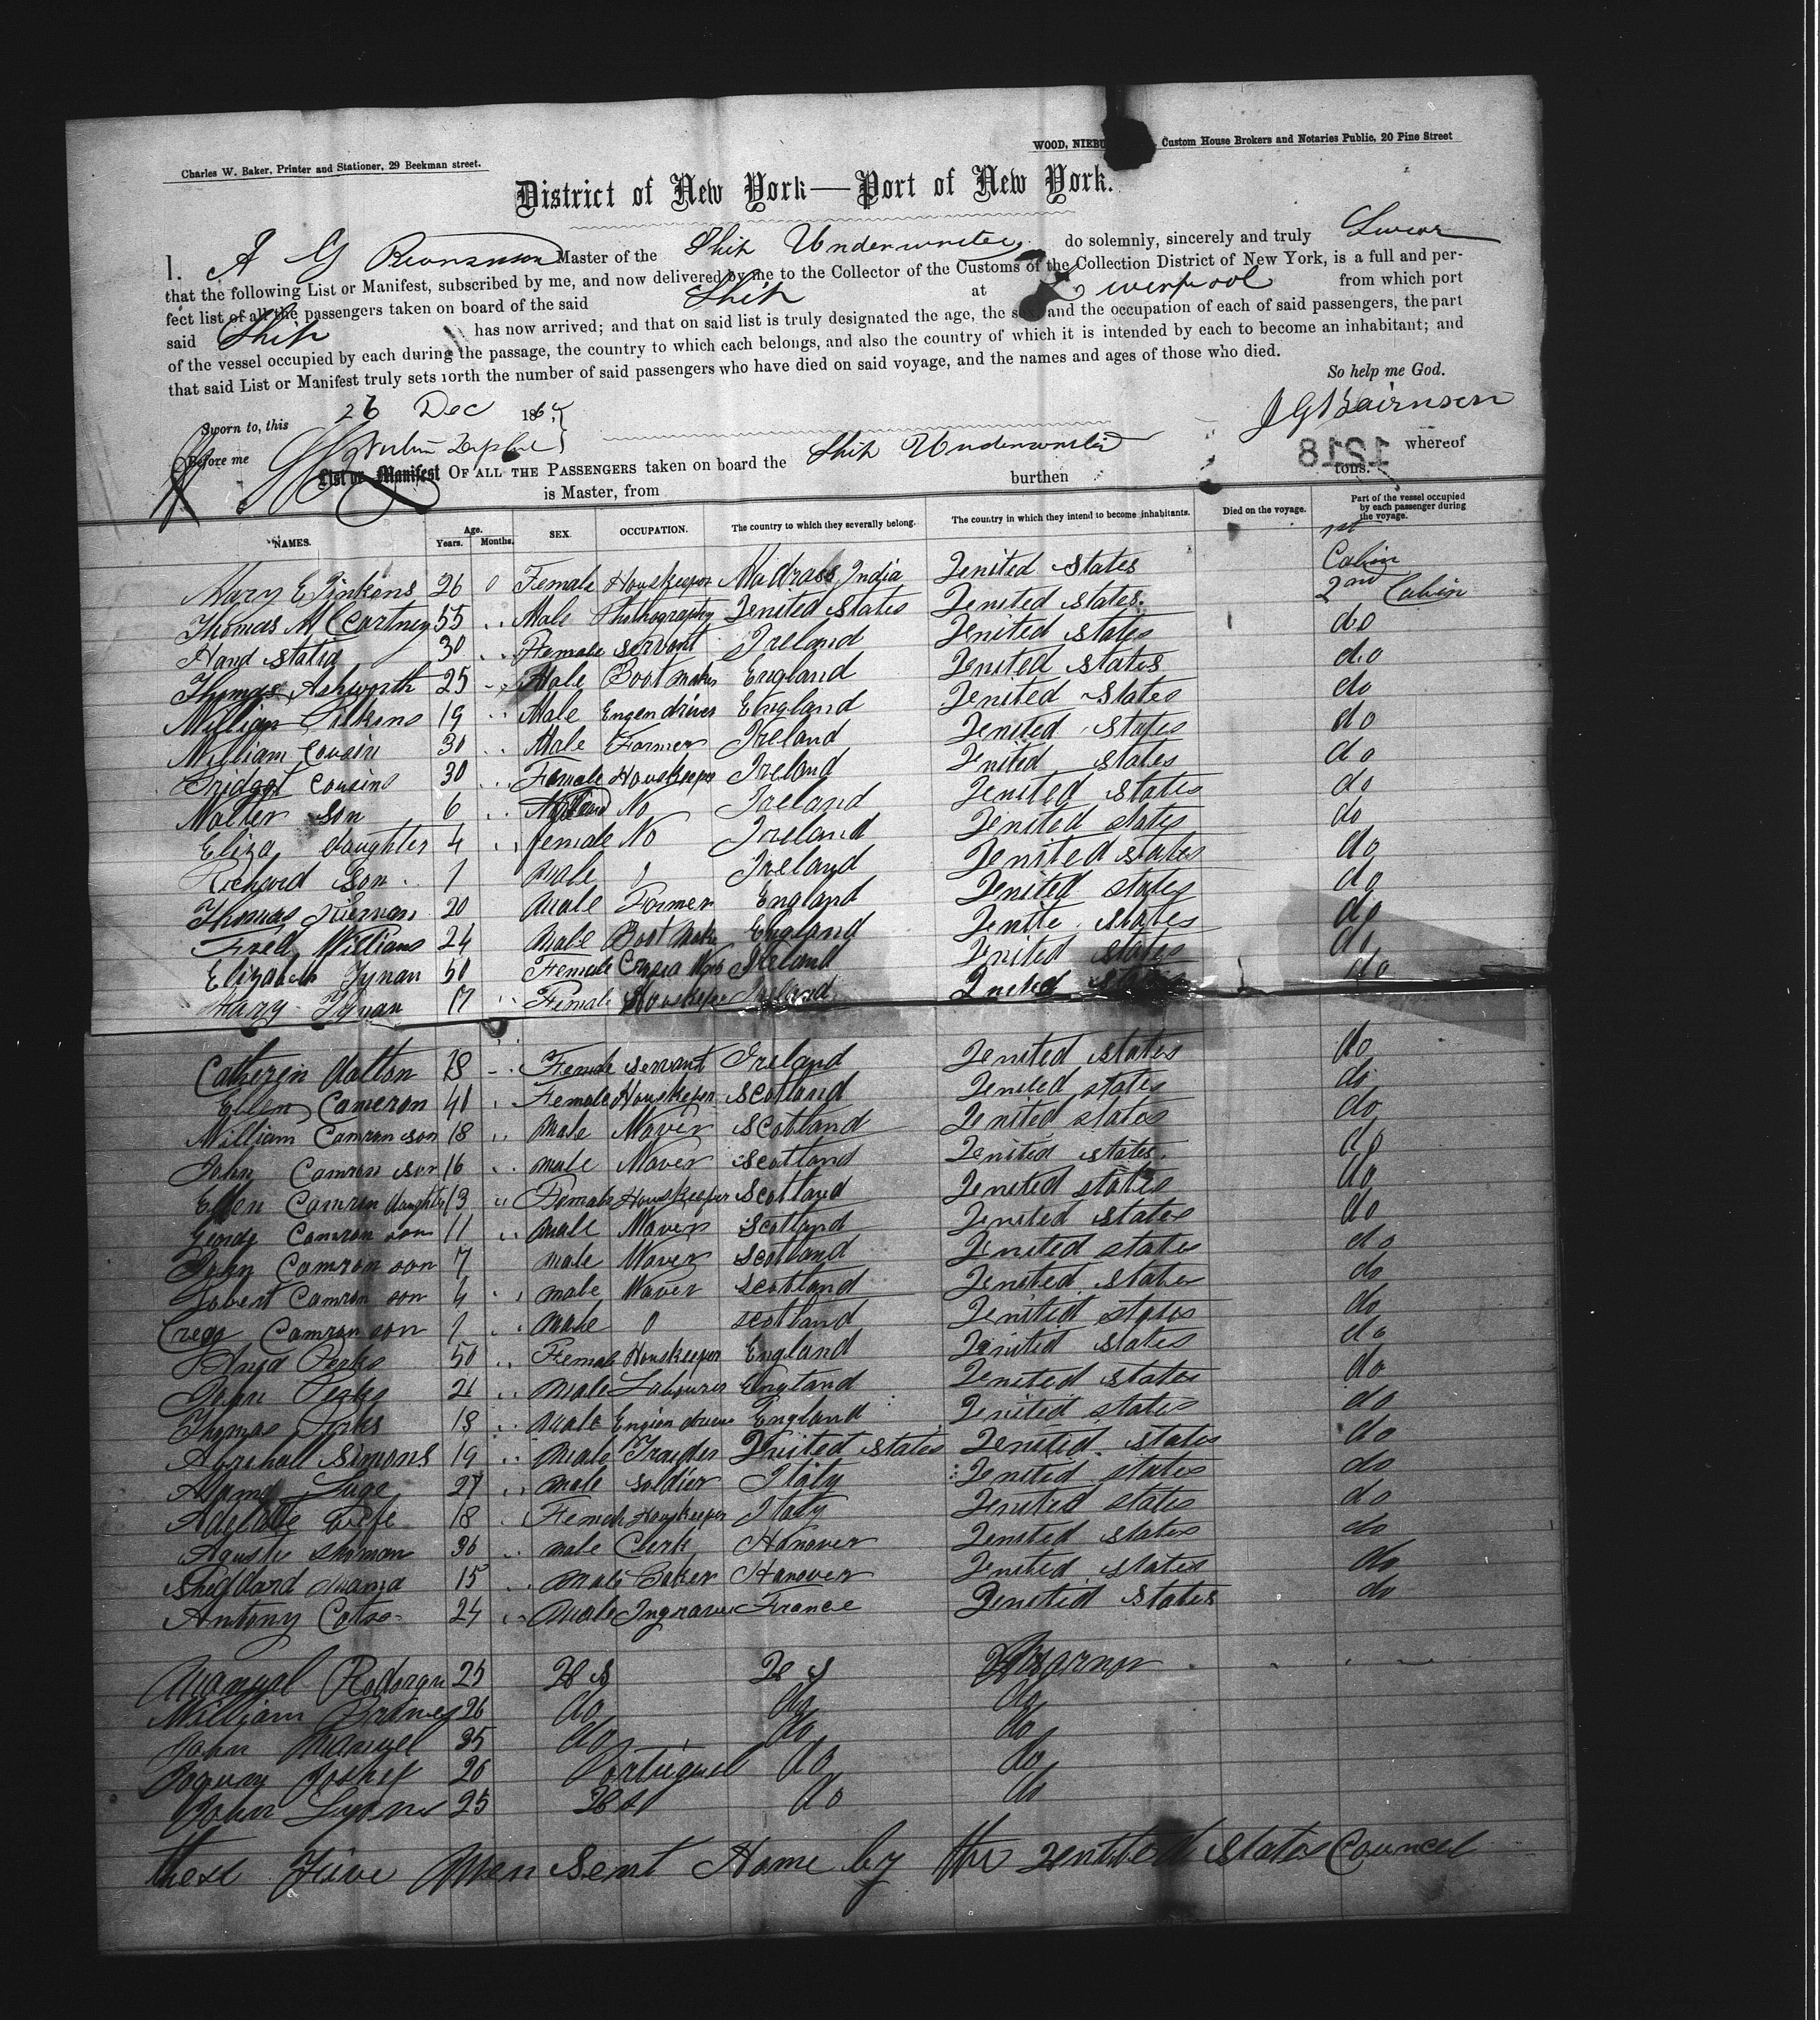 WOOD, NIEBU Custom House Brokers and Notaries Public, 20 Pine Street
Charles W. Baker, Printer and Stationer, 29 Beekman street.
District of New York—Port of New York.
I. Master of the Ship Underwriter do solemnly, sincerely and truly Swear
that the following List or Manifest, subscribed by me, and now delivered by me to the Collector of the Customs of the Collection District of New York, is a full and per-
fect list of all the passengers taken on board of the said Ship at Liverpool from which port
said Ship has now arrived; and that on said list is truly designated the age, the sex, and the occupation of each of said passengers, the part
of the vessel occupied by each during the passage, the country to which each belongs, and also the country of which it is intended by each to become an inhabitant; and
that said List or Manifest truly sets forth the number of said passengers who have died on said voyage, and the names and ages of those who died.
So help me God.
Sworn to, this 26 Dec 186
Before me
List or Manifest OF ALL THE PASSENGERS taken on board the Ship Underwriter whereof
is Master, from burthen 1218 tons.
NAMES. Age. Years. Months. SEX. OCCUPATION. The country to which they severally belong. The country in which they intend to become inhabitants. Died on the voyage. Part of the vessel occupied by each passenger during the voyage.
Mary E Jinkens 26 0 Female Houskeeper Madrass India United States 1st Cabin
Thomas McCartney 55 Male United States United States. 2nd Cabin
30 Female Servant Ireland United States do
Thomas Ashworth 25 Male Boot maker England United States do
William 19 Male Engen driver England United States do
William Cousin 30 Male Farmer Ireland United States do
Bridget Cousins 30 Female Houskeeper Ireland United States do
Walter Son 6 No Ireland United States do
Eliza daughter 4 female No Ireland United States do
Richard Son 1 Male Ireland United States do
Thomas 20 Male Farmer England United States do
Fred Williams 24 Male Boot Make England Unite States do
Elizabeth Tynan 50 Female Ireland United States do
Mary Tynan 17 Female Houskeper Ireland United States do
Catherin dalton 28 Female servant Ireland United States do
Ellen Cameron 41 Female Houskeper Scotland United States do
William Camron son 18 Male Waver Scotland United States do
John Camron son 16 male Waver Scotland United States do
Ellen Camron daughter 13 Female Houskeeper Scotland United States do
Camron son 11 male Waver Scotland United States do
John Camron son 7 male Waver Scotland United States do
Robert Camron son 4 male Waver Scotland United States do
Camron son 1 Male 0 Scotland United States do
Perks 50 Female Houskeeper England United States do
John Perks 21 Male Labourer England United States do
Thomas Perks 18 Male Engien driver England United States do
Simons 19 Male Traider United States United States do
27 male Soldier Itily United States do
wife 18 Female Houskeeper Italy United States do
30 male Clerk Hanover United States do
15 Male Baker Hanover United States do
Antony 24 Male Ingraver France United States do
Manyel 25 U S U S
William 26 do do do
John Manyel 35 do do do
20 Portuguel do do
John Lyons 25 U S do do
these Five Men Sent Home by the United States Councel